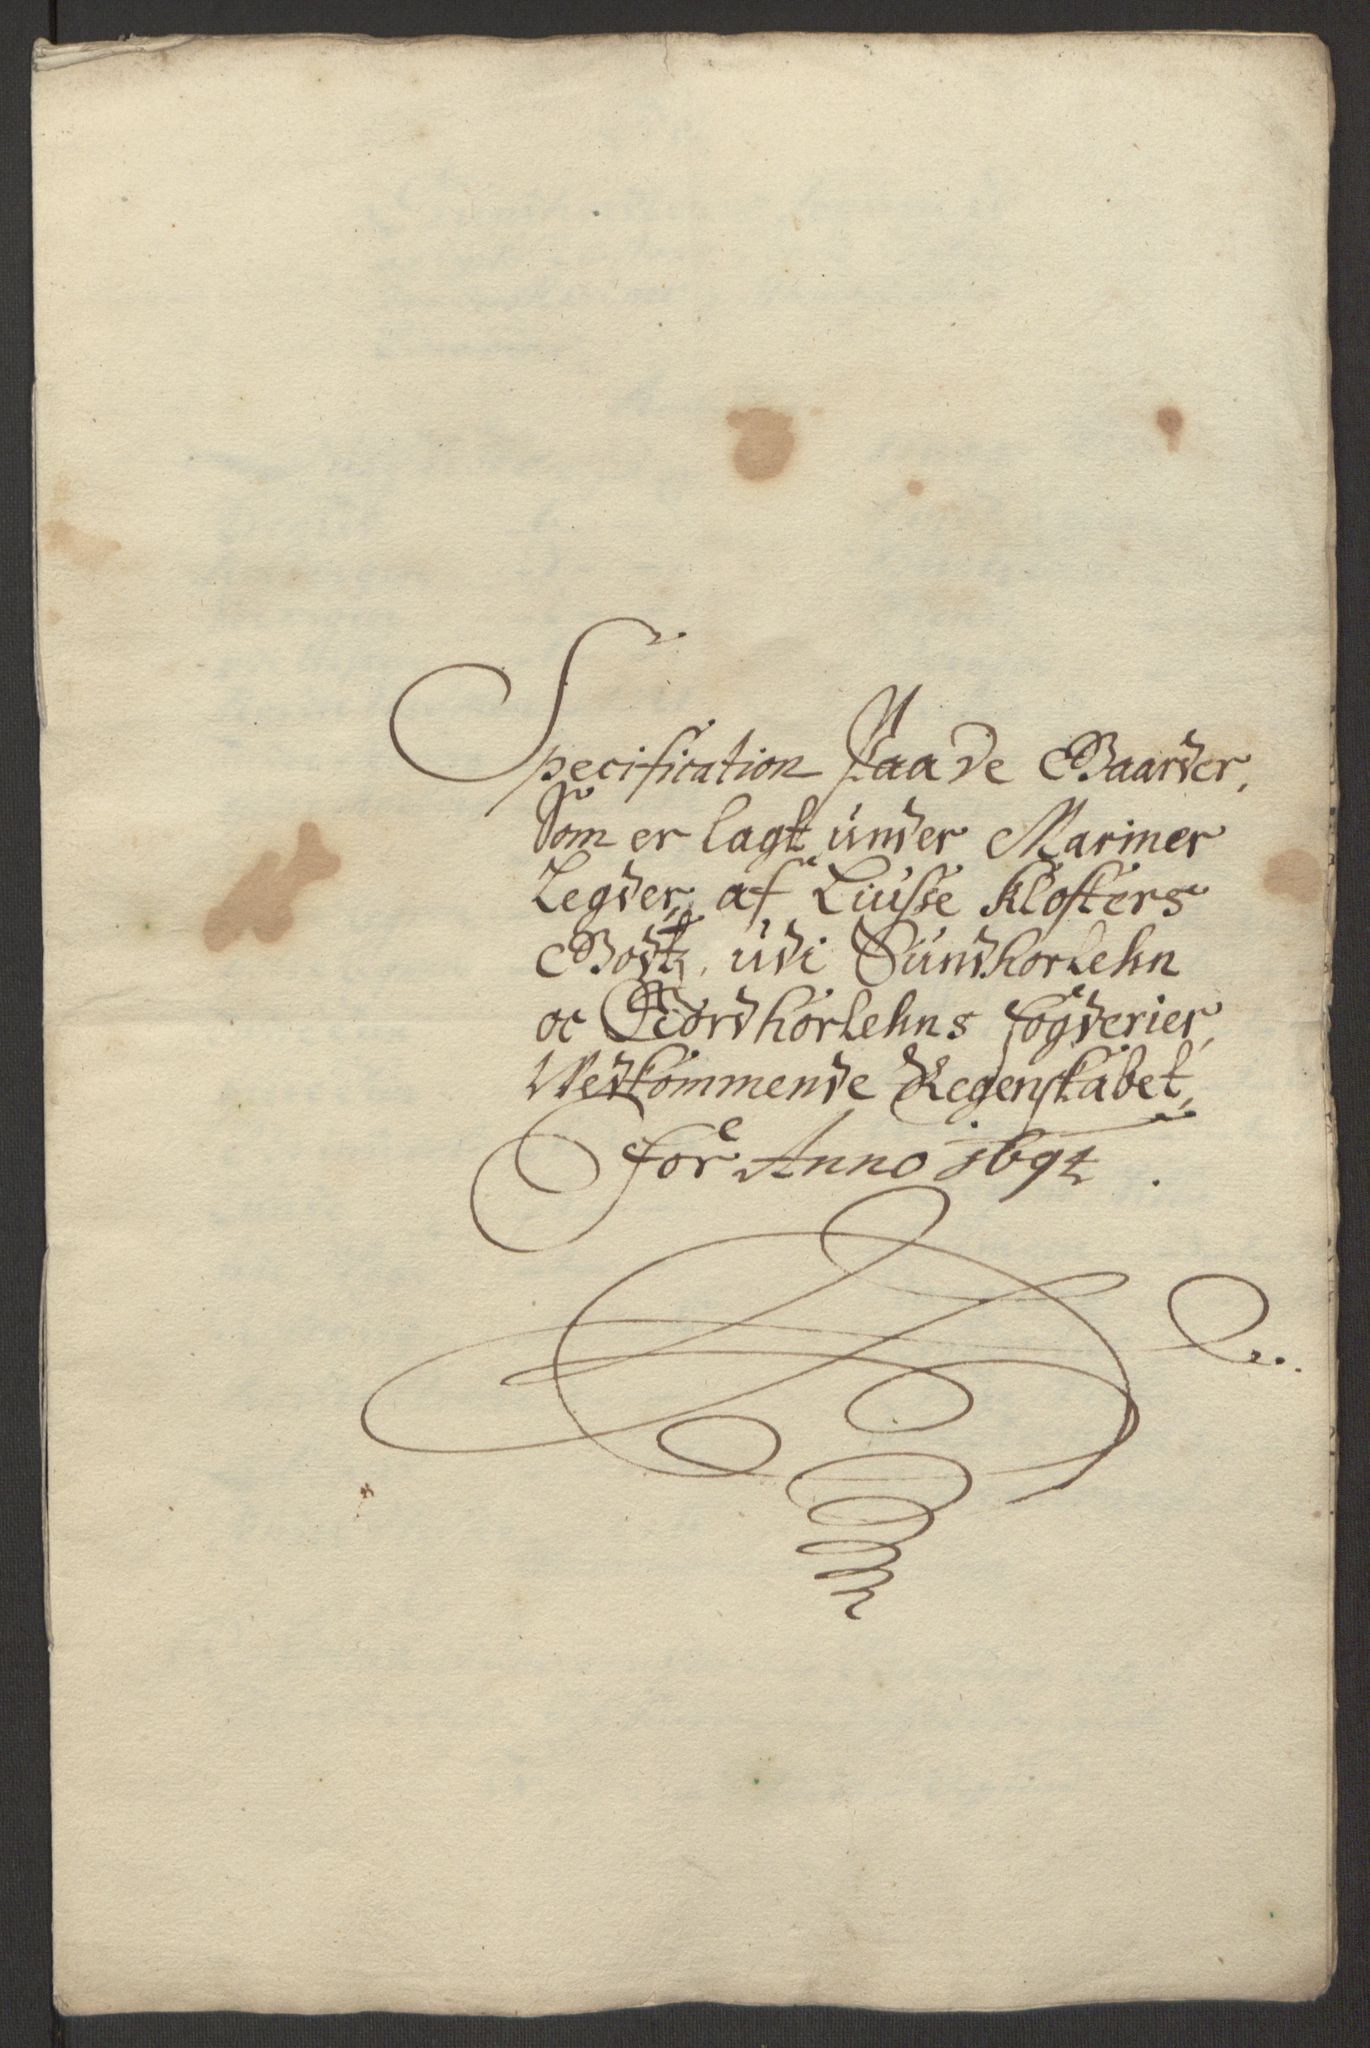 Specification Paa de Gaarder,
Som er lagt under Mariner
Legder, af Liusse Klosters
Godtz, udi Sundhorlehn
oc Nordhorlehns fogderier,
Vedkommende Regenskabet,
for Anno 1694.